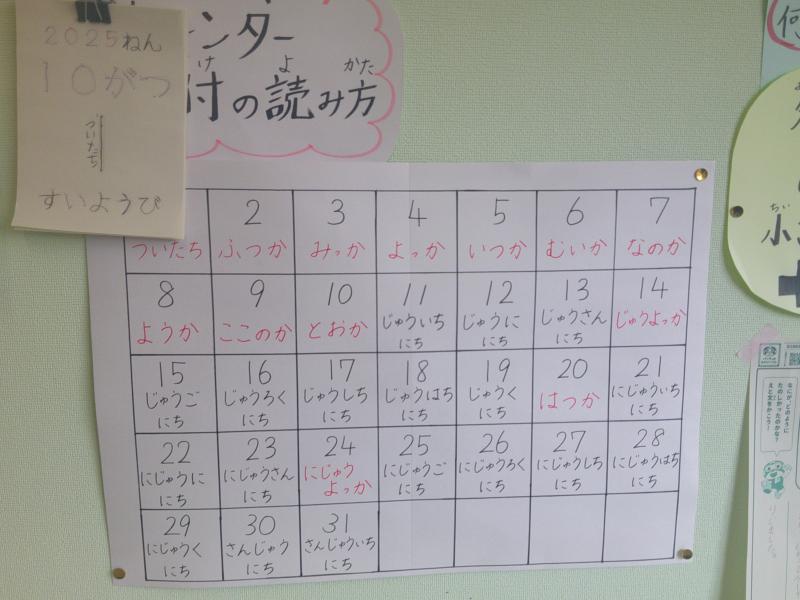 2025ねん
10がつ
ついたち
すいようび
レンダー
け よ かた
付の読み方
ついたち
2 3 4 5 6 7
ふつか みっか よっか いつか むいか なのか
8 9 10 11 12 13 14
ようか ここのか とおか じゅういちにち じゅうににち じゅうさんにち じゅうよっか
15 16 17 18 19 20 21
じゅうごにち じゅうろくにち じゅうしちにち じゅうはちにち じゅうくにち はつか にじゅういちにち
22 23 24 25 26 27 28
にじゅうににち にじゅうさんにち にじゅうよっか にじゅうごにち にじゅうろくにち にじゅうしちにち にじゅうはちにち
29 30 31
にじゅうくにち さんじゅうにち さんじゅういちにち
何
ちい
小
なにが、どのように
たのしかったのかな?
えと文をかこう!